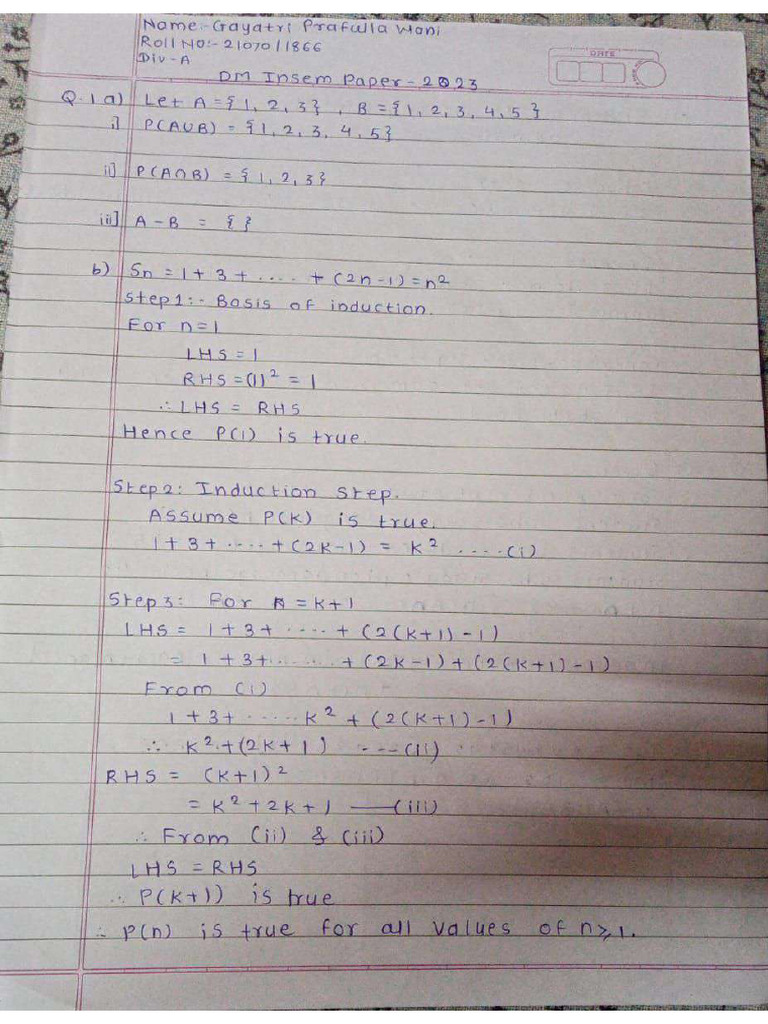 Name:- Gayatri Prafulla Wani
Roll No:- 21070/1866
Div-A
DATE
DM Insem Paper - 2023
Q.1 a) Let A = {1, 2, 3} , B = {1, 2, 3, 4, 5}
i] P(A∪B) = {1, 2, 3, 4, 5}
ii] P(A∩B) = {1, 2, 3}
iii] A - B = { }
b) Sn = 1 + 3 + ..... + (2n-1) = n²
Step 1:- Basis of induction.
For n = 1
LHS = 1
RHS = (1)² = 1
∴ LHS = RHS
Hence P(1) is true.
Step 2: Induction step.
Assume P(K) is true.
1 + 3 + ..... + (2K-1) = K² ....(i)
Step 3: For n = K+1
LHS = 1 + 3 + ..... + (2(K+1) - 1)
= 1 + 3 + ....... + (2K-1) + (2(K+1) - 1)
From (i)
1 + 3 + ..... K² + (2(K+1) - 1)
∴ K² + (2K + 1) ---(ii)
RHS = (K+1)²
= K² + 2K + 1 —(iii)
∴ From (ii) & (iii)
LHS = RHS
∴ P(K+1) is true
∴ P(n) is true for all values of n ≥ 1.